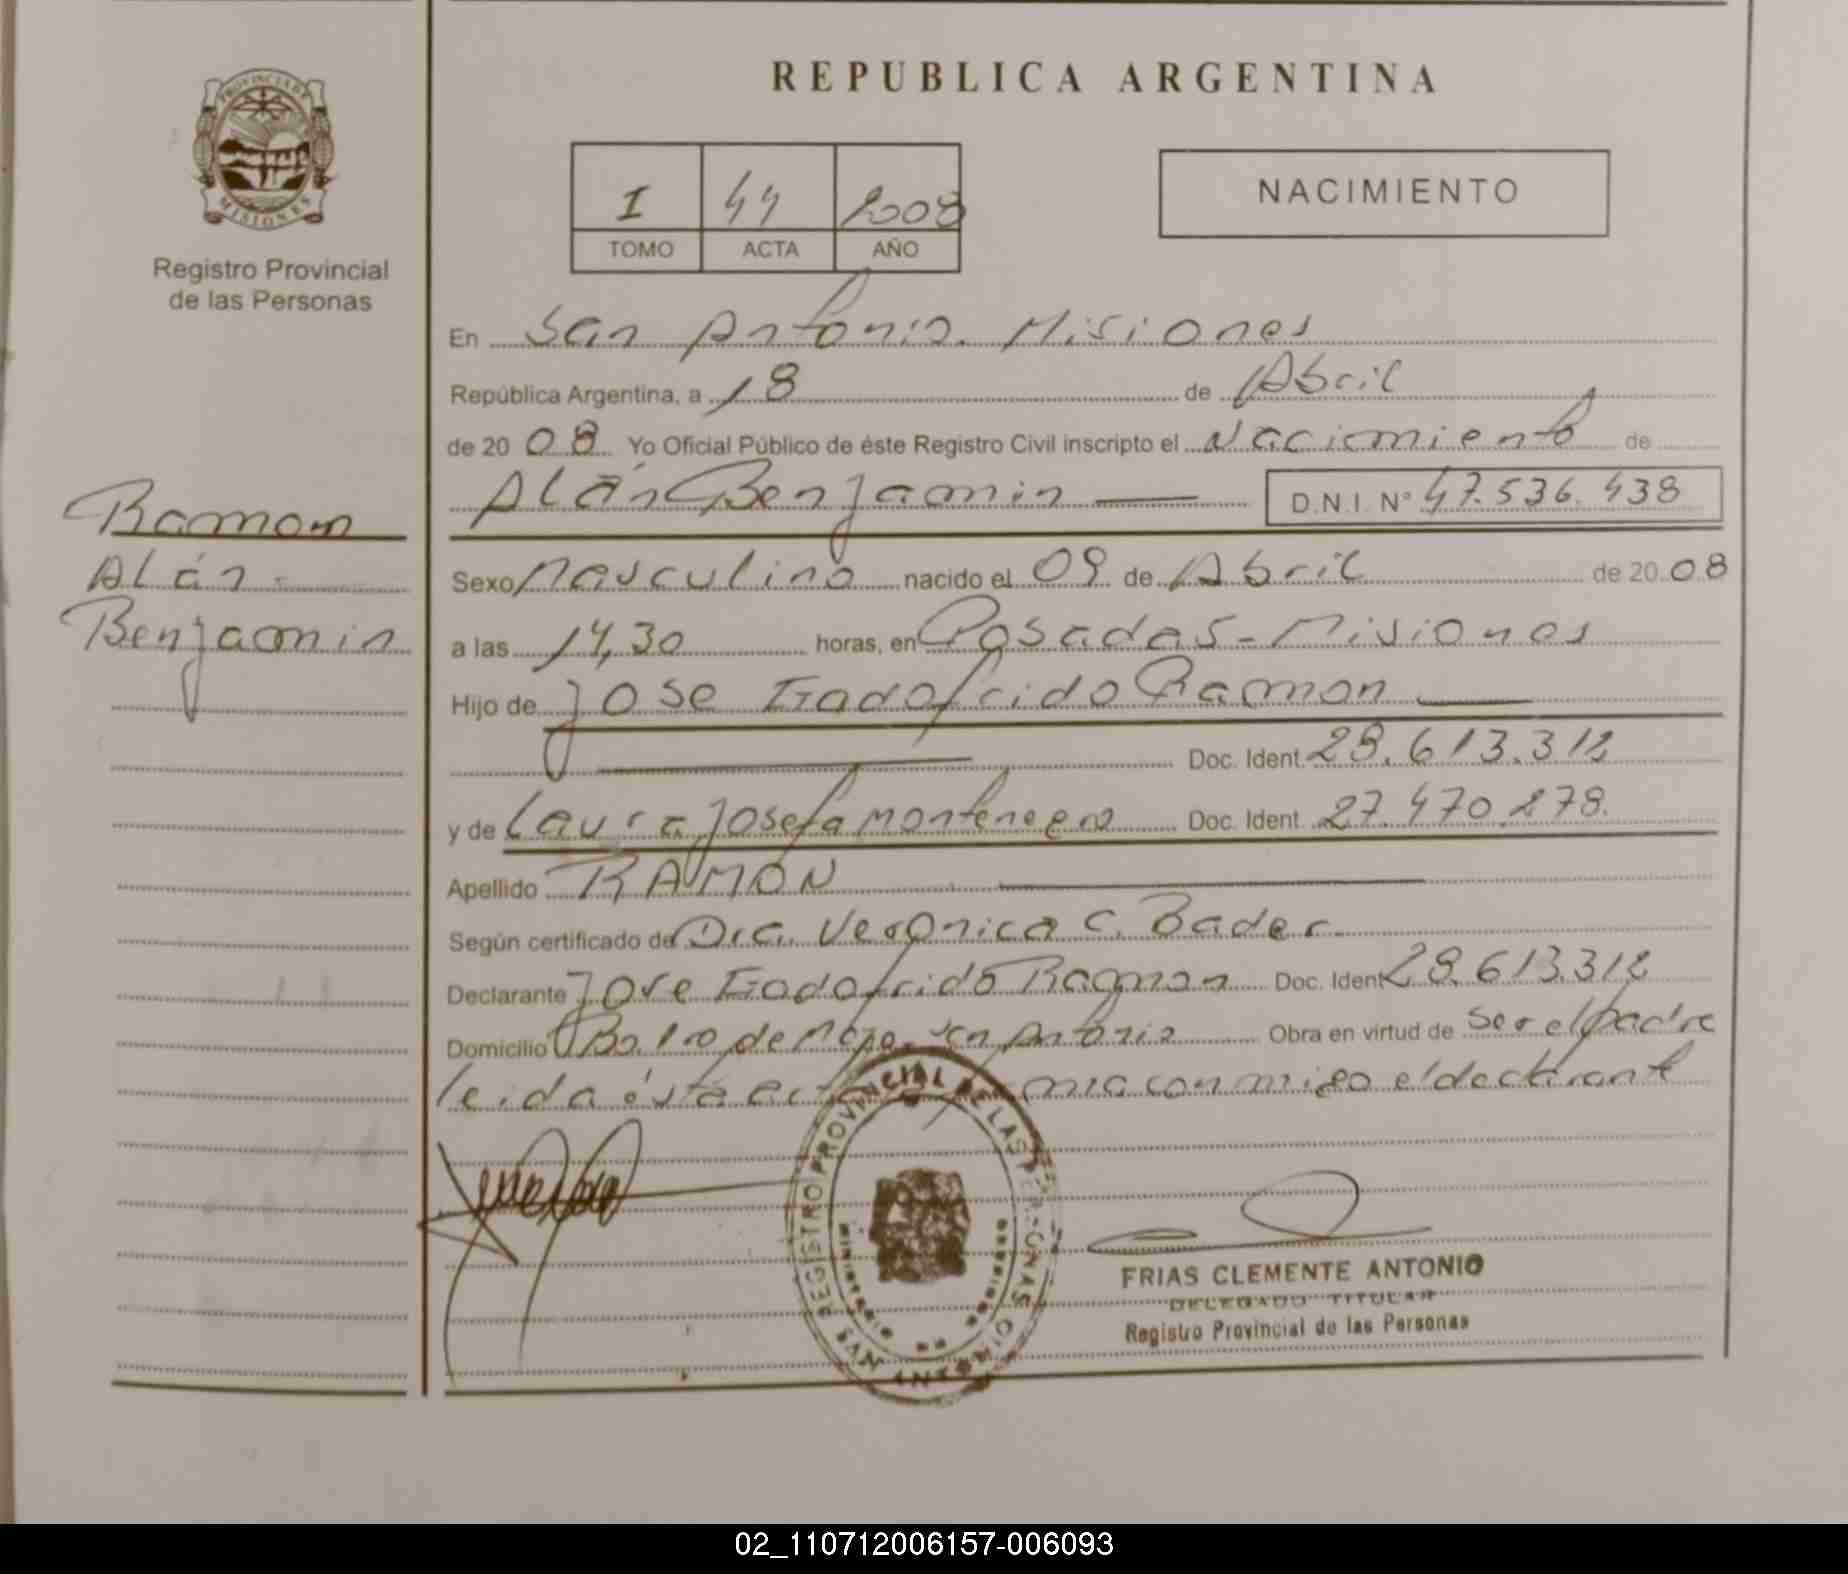 REPUBLICA ARGENTINA
PROVINCIA DE MISIONES
Registro Provincial
de las Personas
I 44 2008
TOMO ACTA AÑO
NACIMIENTO
En San Antonio. Misiones
República Argentina, a 18 de Abril
de 2008 Yo Oficial Público de éste Registro Civil inscripto el Nacimiento de
Alán Benjamin D.N.I. Nº 47.536.438
Ramon
Alán
Benjamin
Sexo Masculino nacido el 09 de Abril de 2008
a las 14,30 horas, en Posadas - Misiones
Hijo de Jose Ramon
Doc. Ident. 28.613.312
y de Laura Josefa Montenegro Doc. Ident. 27.470.278.
Apellido RAMON
Según certificado de Dra. Veronica C. Bader
Declarante Jose Ramon Doc. Ident 28.613.312
Domicilio San Antonio Obra en virtud de ser el padre
leida ésta conmigo el declarante
REGISTRO PROVINCIAL DE LAS PERSONAS
FRIAS CLEMENTE ANTONIO
DELEGADO TITULAR
Registro Provincial de las Personas
02_110712006157-006093